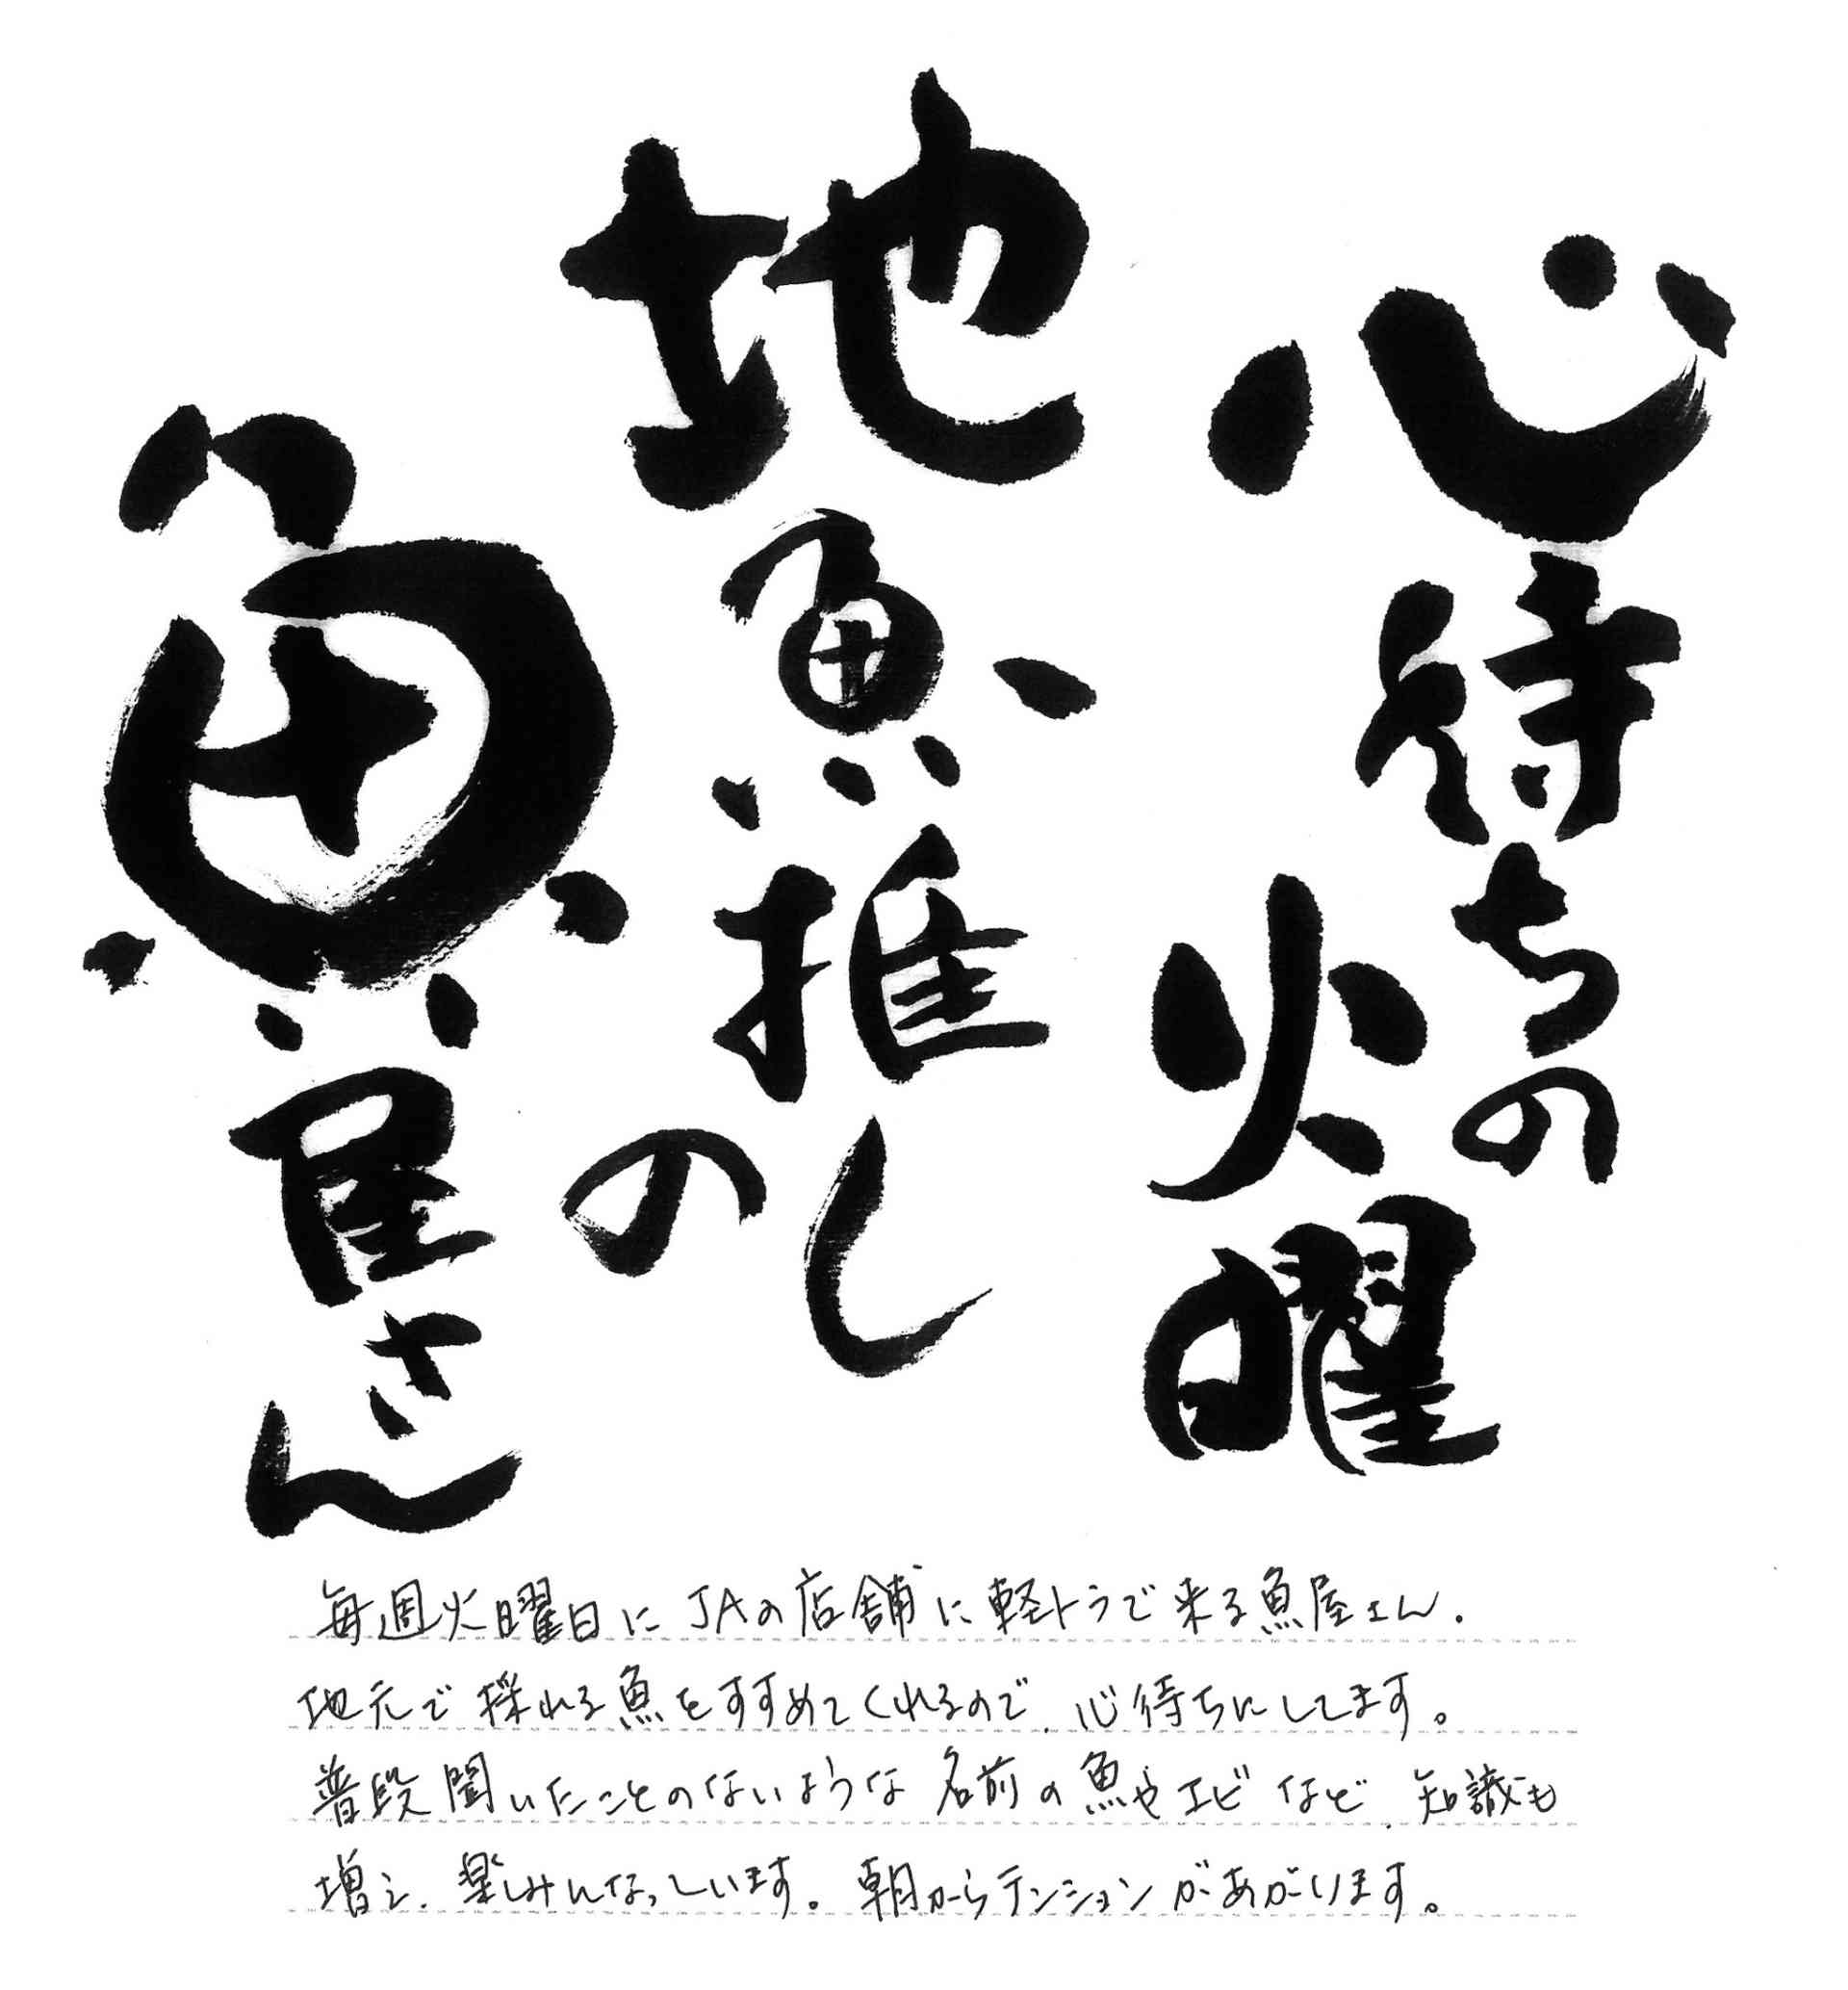 心待ちの火曜
地魚推しの
魚屋さん
毎週火曜日にJAの店舗に軽トラで来る魚屋さん.
地元で採れる魚をすすめてくれるので、心待ちにしてます。
普段聞いたことのないような名前の魚やエビなど、知識も
増え、楽しみになっています。朝からテンションがあがります。